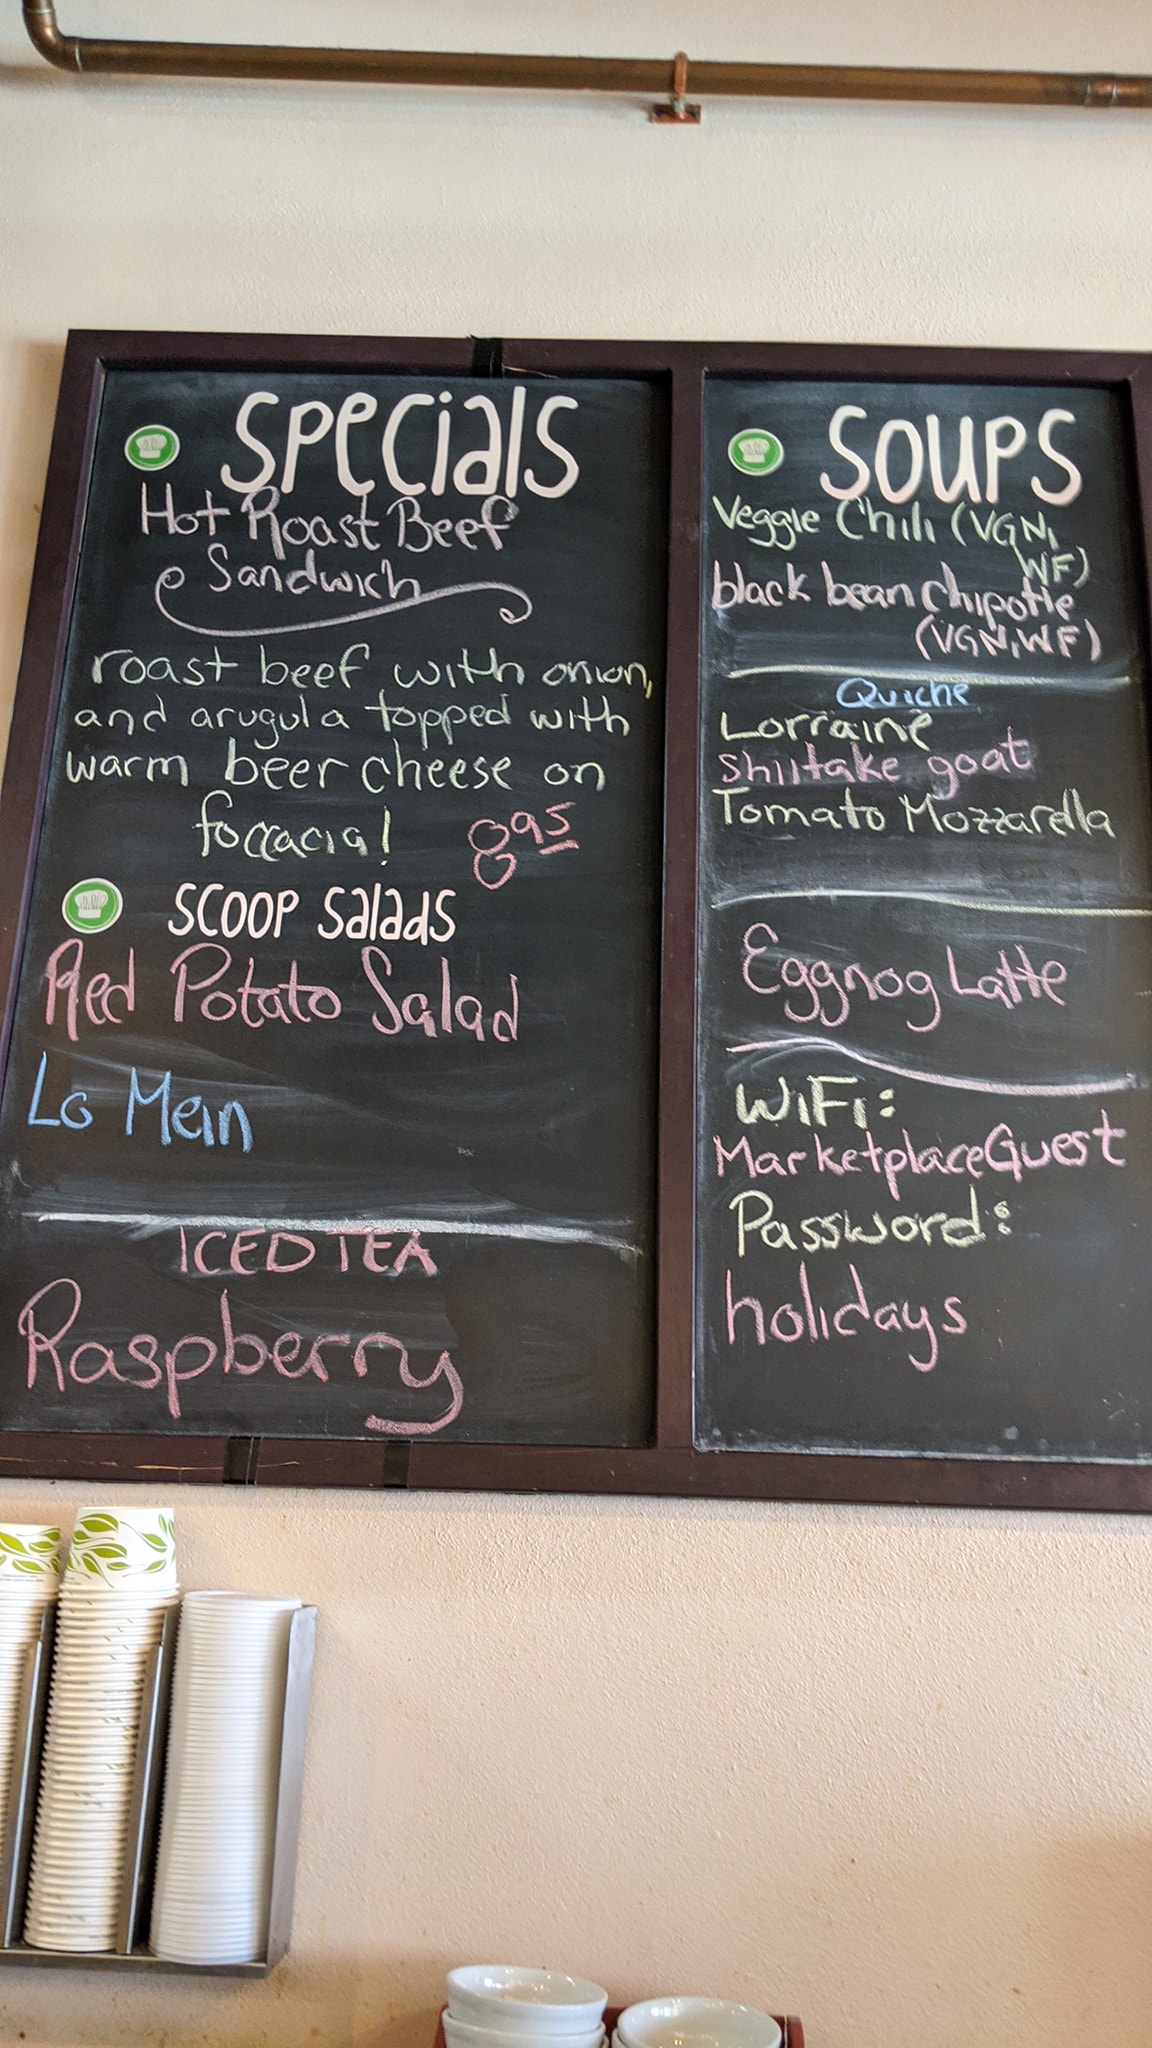 Specials
Hot Roast Beef
Sandwich
roast beef with onion,
and arugula topped with
warm beer cheese on
foccacia! 8.95
Scoop Salads
Red Potato Salad
Lo Mein
ICED TEA
Raspberry
Soups
Veggie Chili (VGN,
WF)
black bean chipotle
(VGN, WF)
Quiche
Lorraine
shiitake goat
Tomato Mozzarella
Eggnog Latte
WiFi:
MarketplaceGuest
Password:
holidays